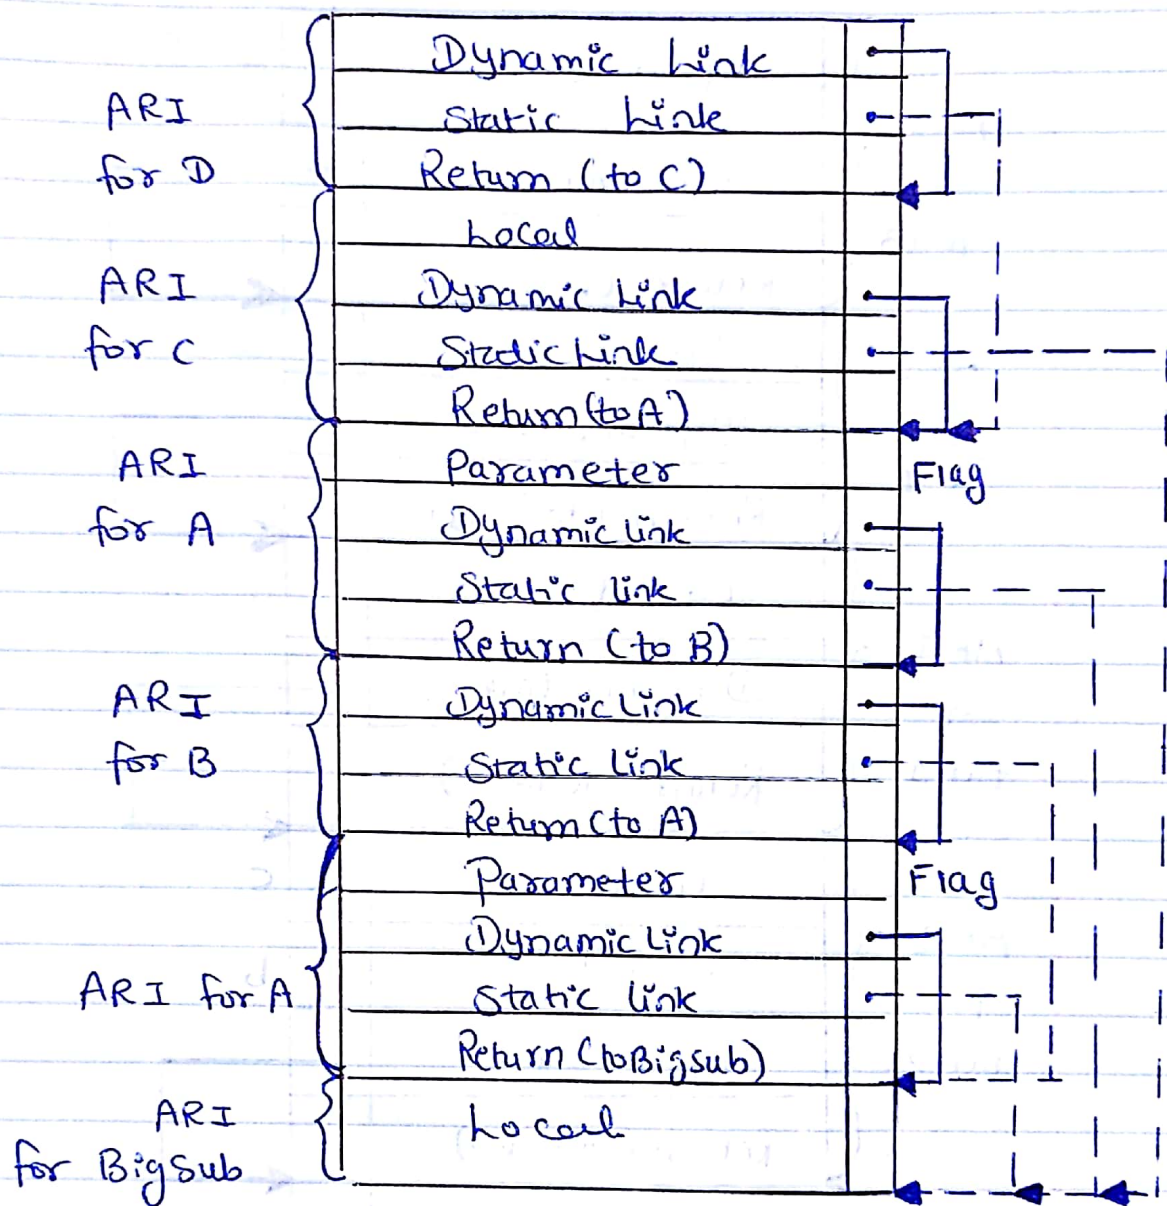 Dynamic Link
ARI
for D
Static Link
Return (to C)
Local
ARI
for C
Dynamic Link
Static Link
Return (to A)
ARI
for A
Parameter
Flag
Dynamic link
Static link
Return (to B)
ARI
for B
Dynamic Link
Static link
Return (to A)
Parameter
Flag
Dynamic Link
ARI for A
Static link
Return (to Bigsub)
ARI
for Bigsub
Local